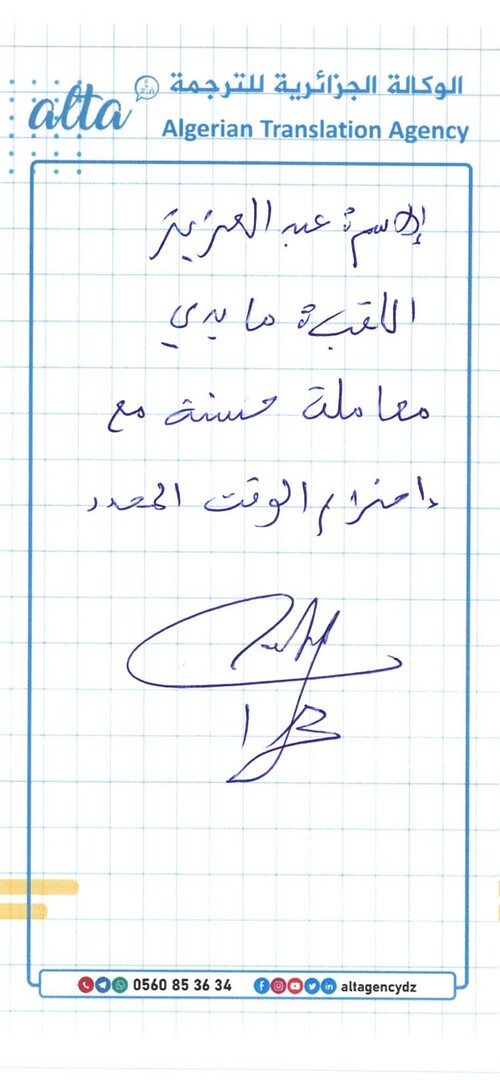 الوكالة الجزائرية للترجمة
alta
Algerian Translation Agency
الاسم: عبد العزيز
اللقب: مايدي
معاملة حسنة مع
إحترام الوقت المحدد
0560 85 36 34
altagencydz